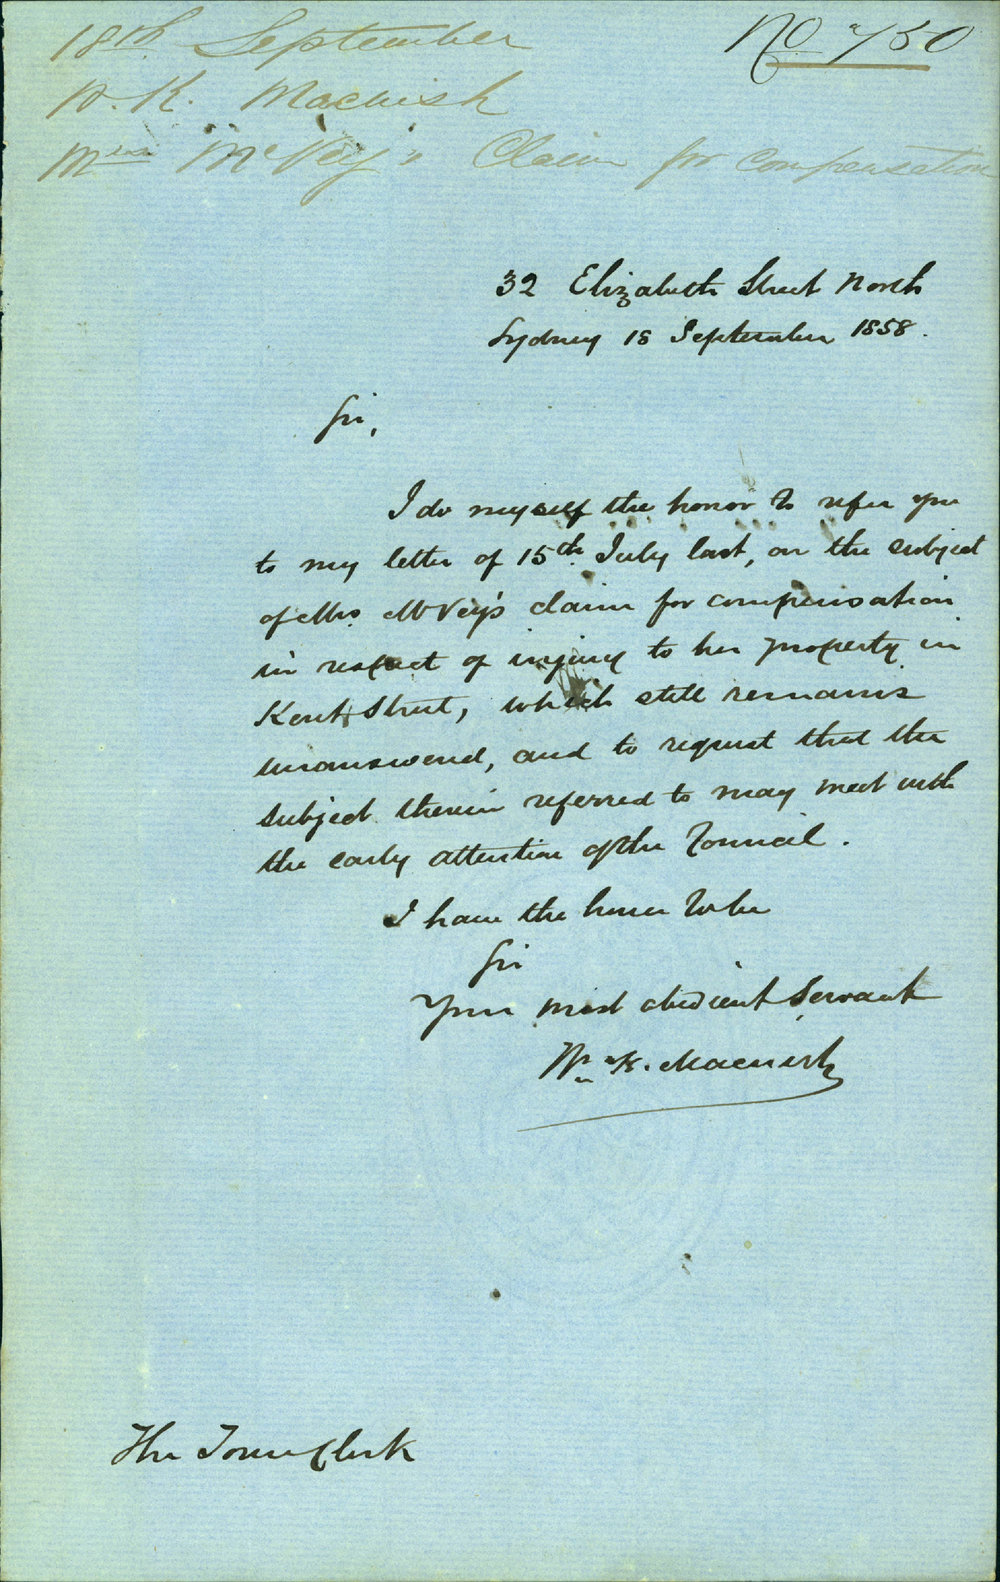 18th September No 750
W. K. Macnish
Mrs McVey's Claim for compensation
32 Elizabeth Street North
Sydney 18 September 1858.
Sir,
I do myself the honor to refer you
to my letter of 15th July last, on the subject
of Mrs McVey's claim for compensation
in respect of injury to her property in
Kent Street, which still remains
unanswered, and to request that the
subject therein referred to may meet with
the early attention of the Council.
I have the honor to be
Sir
Your most obedient Servant
Wm K. Macnish
The Town Clerk